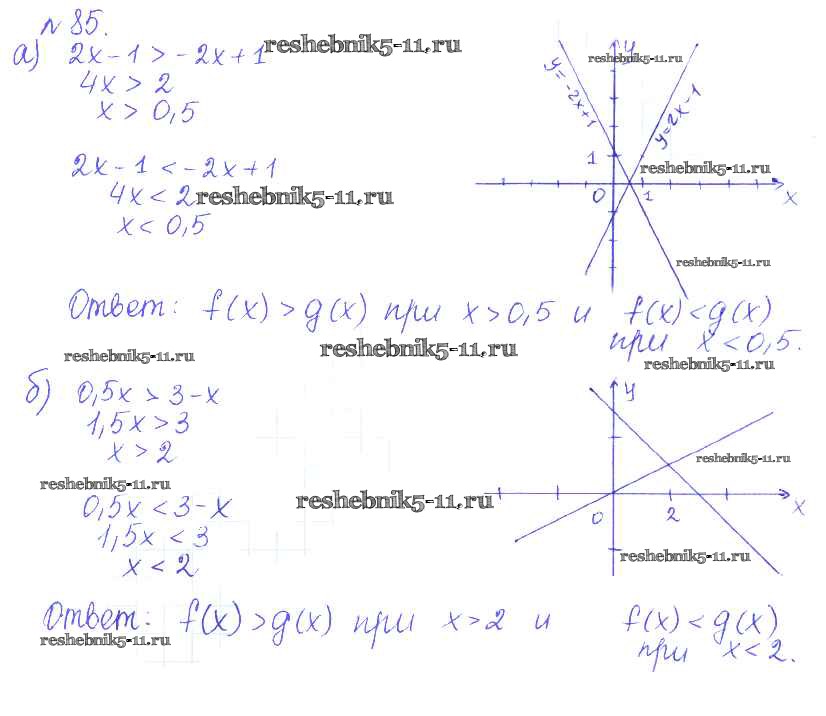 № 85.
а) 2x - 1 > - 2x + 1 reshebnik5-11.ru
4x > 2
x > 0,5
2x - 1 < - 2x + 1
4x < 2 reshebnik5-11.ru
x < 0,5
y
reshebnik5-11.ru
y = -2x+1
y=2x-1
1
reshebnik5-11.ru
0 1 x
reshebnik5-11.ru
Ответ: f(x) > g(x) при x > 0,5 и f(x) < g(x)
при x < 0,5.
reshebnik5-11.ru reshebnik5-11.ru reshebnik5-11.ru
б) 0,5x > 3 - x
1,5x > 3
x > 2
reshebnik5-11.ru
0,5x < 3 - x
1,5x < 3
x < 2
reshebnik5-11.ru
y
reshebnik5-11.ru
0 2 x
reshebnik5-11.ru
Ответ: f(x) > g(x) при x > 2 и f(x) < g(x)
при x < 2.
reshebnik5-11.ru